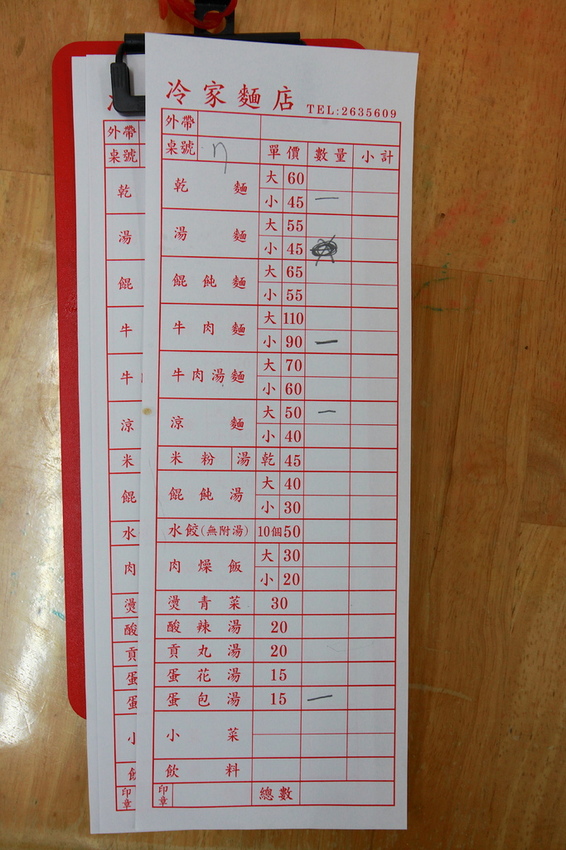 冷家麵店 TEL:2635609
外帶
桌號 η 單價 數量 小計
乾麵 大 60
小 45 一
湯麵 大 55
小 45
餛飩麵 大 65
小 55
牛肉麵 大 110
小 90 一
牛肉湯麵 大 70
小 60
涼麵 大 50 一
小 40
米粉 湯 乾 45
餛飩湯 大 40
小 30
水餃(無附湯) 10個50
肉燥飯 大 30
小 20
燙青菜 30
酸辣湯 20
貢丸湯 20
蛋花湯 15
蛋包湯 15 一
小菜
飲料
印章 總數
外帶
桌號
乾
湯
餛
牛
牛
涼
米
餛
水
肉
燙
酸
貢
蛋
蛋
小
印章